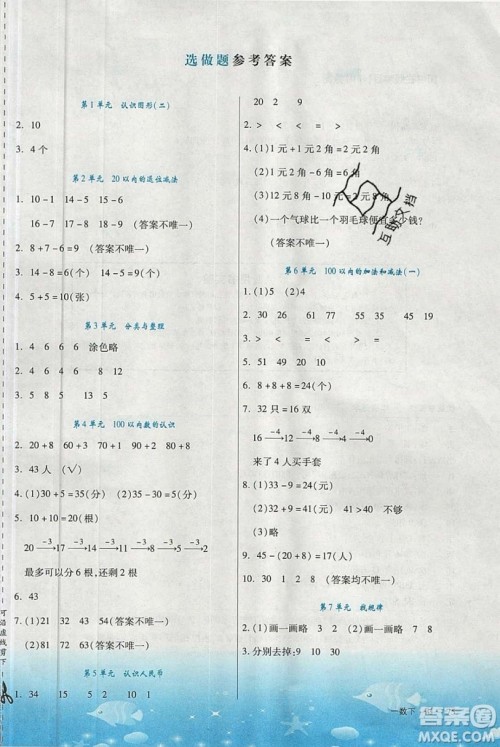 选做题参考答案
第1单元 认识图形(二)
2. 10
3. 4个
第2单元 20以内的退位减法
1. 10-1 14-5 15-6
16-7 17-8 18-9 (答案不唯一)
2. 8+7-6=9 (答案不唯一)
3. 14-8=6(个) 14-5=9(个)
4. 5+5=10(张)
第3单元 分类与整理
1. 4 6 6 6 涂色略
2. 4 6 4 6 8 9 12
3. 5 8 13
第4单元 100以内数的认识
2. 20+8 60+4 70+1 90+2 80+8
3. 43人 (√)
4. (1)30+5=35(分) (2)35
5. 10+10=20(根)
20 -3→ 17 -3→ 14 -3→ 11 -3→ 8 -3→ 5 -3→ 2
最多可以分6根,还剩2根
6. 43
7. (1)21 32 43 54 (答案不唯一)
(2)81 72 63 (答案不唯一)
第5单元 认识人民币
1. 34 15 5 2 10 1
20 2 9
2. > < = > < =
4. (1)1元+1元2角=2元2角
(2)1元2角-6角=6角
(3)12元8角-10元=2元8角
(4)一个气球比一个羽毛球便宜多少钱?
(答案不唯一)
第6单元 100以内的加法和减法(一)
1. (1)5 (2)4
2. 30 40 29 47 55 44
4. > < < > = <
5. 51 49 20 10
6. 8+8+8=24(个)
7. 32只=16双
16 -4→ 12 -4→ 8 -4→ 4 -4→ 0
来了4人买手套
8. (1)33-9=24(只)
(2)33+8=41(只) 41>40 不够
(3)略
9. 45-(20+8)=17(人)
10. 30 9 51 8 (答案均不唯一)
第7单元 找规律
2. (1)画一画略 (2)画一画略
3. 分别去掉:9 10 30
可沿虚线剪下
一数下
互助文档
答案圈
MXQE.COM